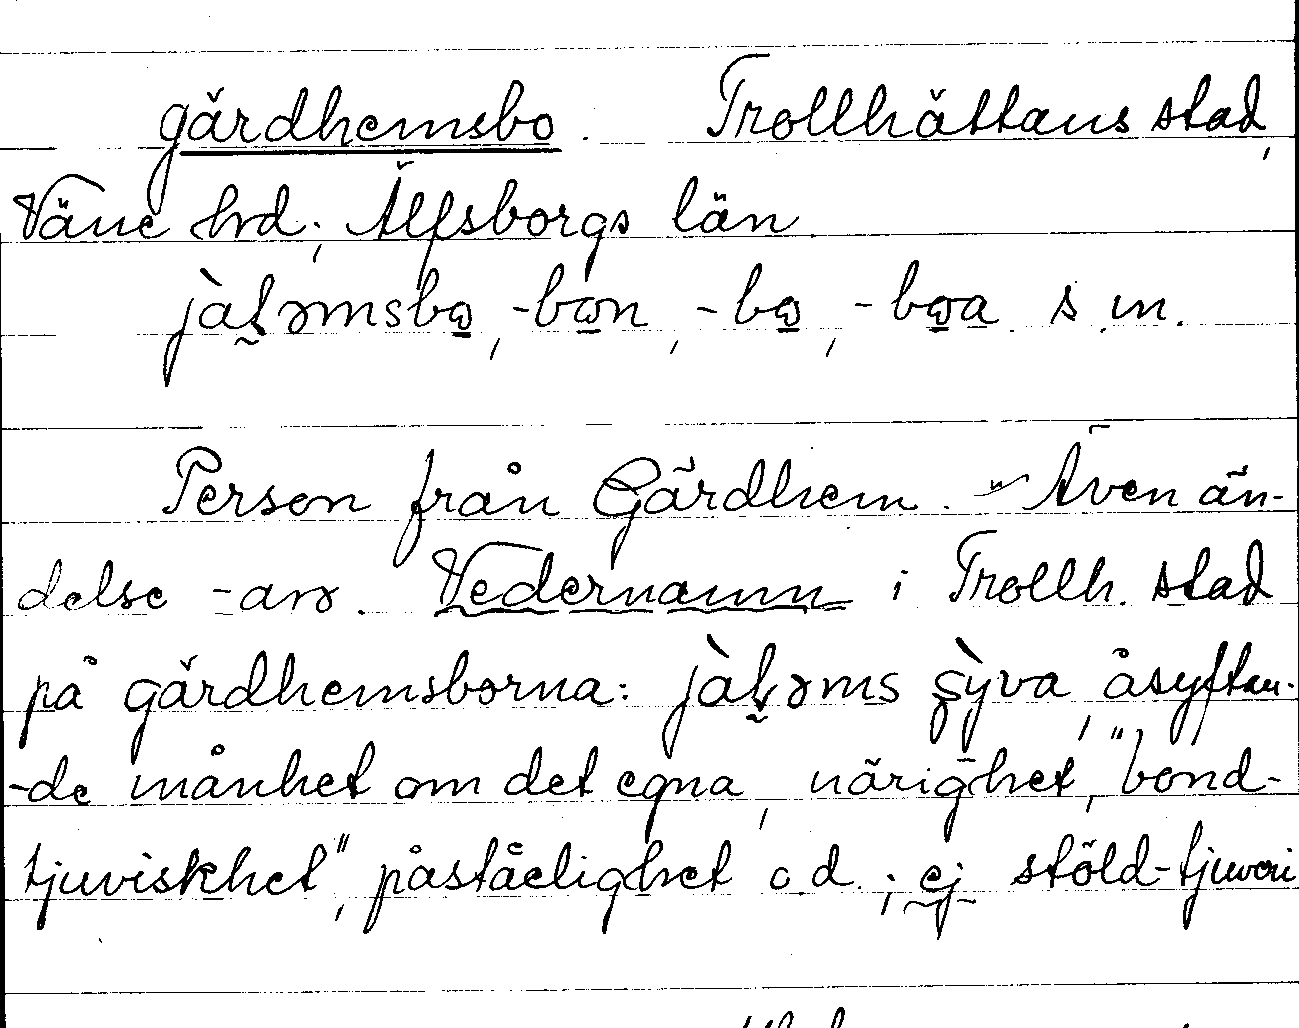 gärdhemsbo. Trollhättans stad,
Väne hrd; Älfsborgs län.
jàɫəmsbω, -bωn, -bω, -bωa s.m.
Person från Gärdhem. – Även än-
delse -arə. Vedernamn i Trollh. stad
på gärdhemsborna: jàɫəms ʂỳva, åsyftan-
-de månhet om det egna, närighet, "bond-
tjuviskhet", påståelighet o.d.; ej stöld-tjuveri